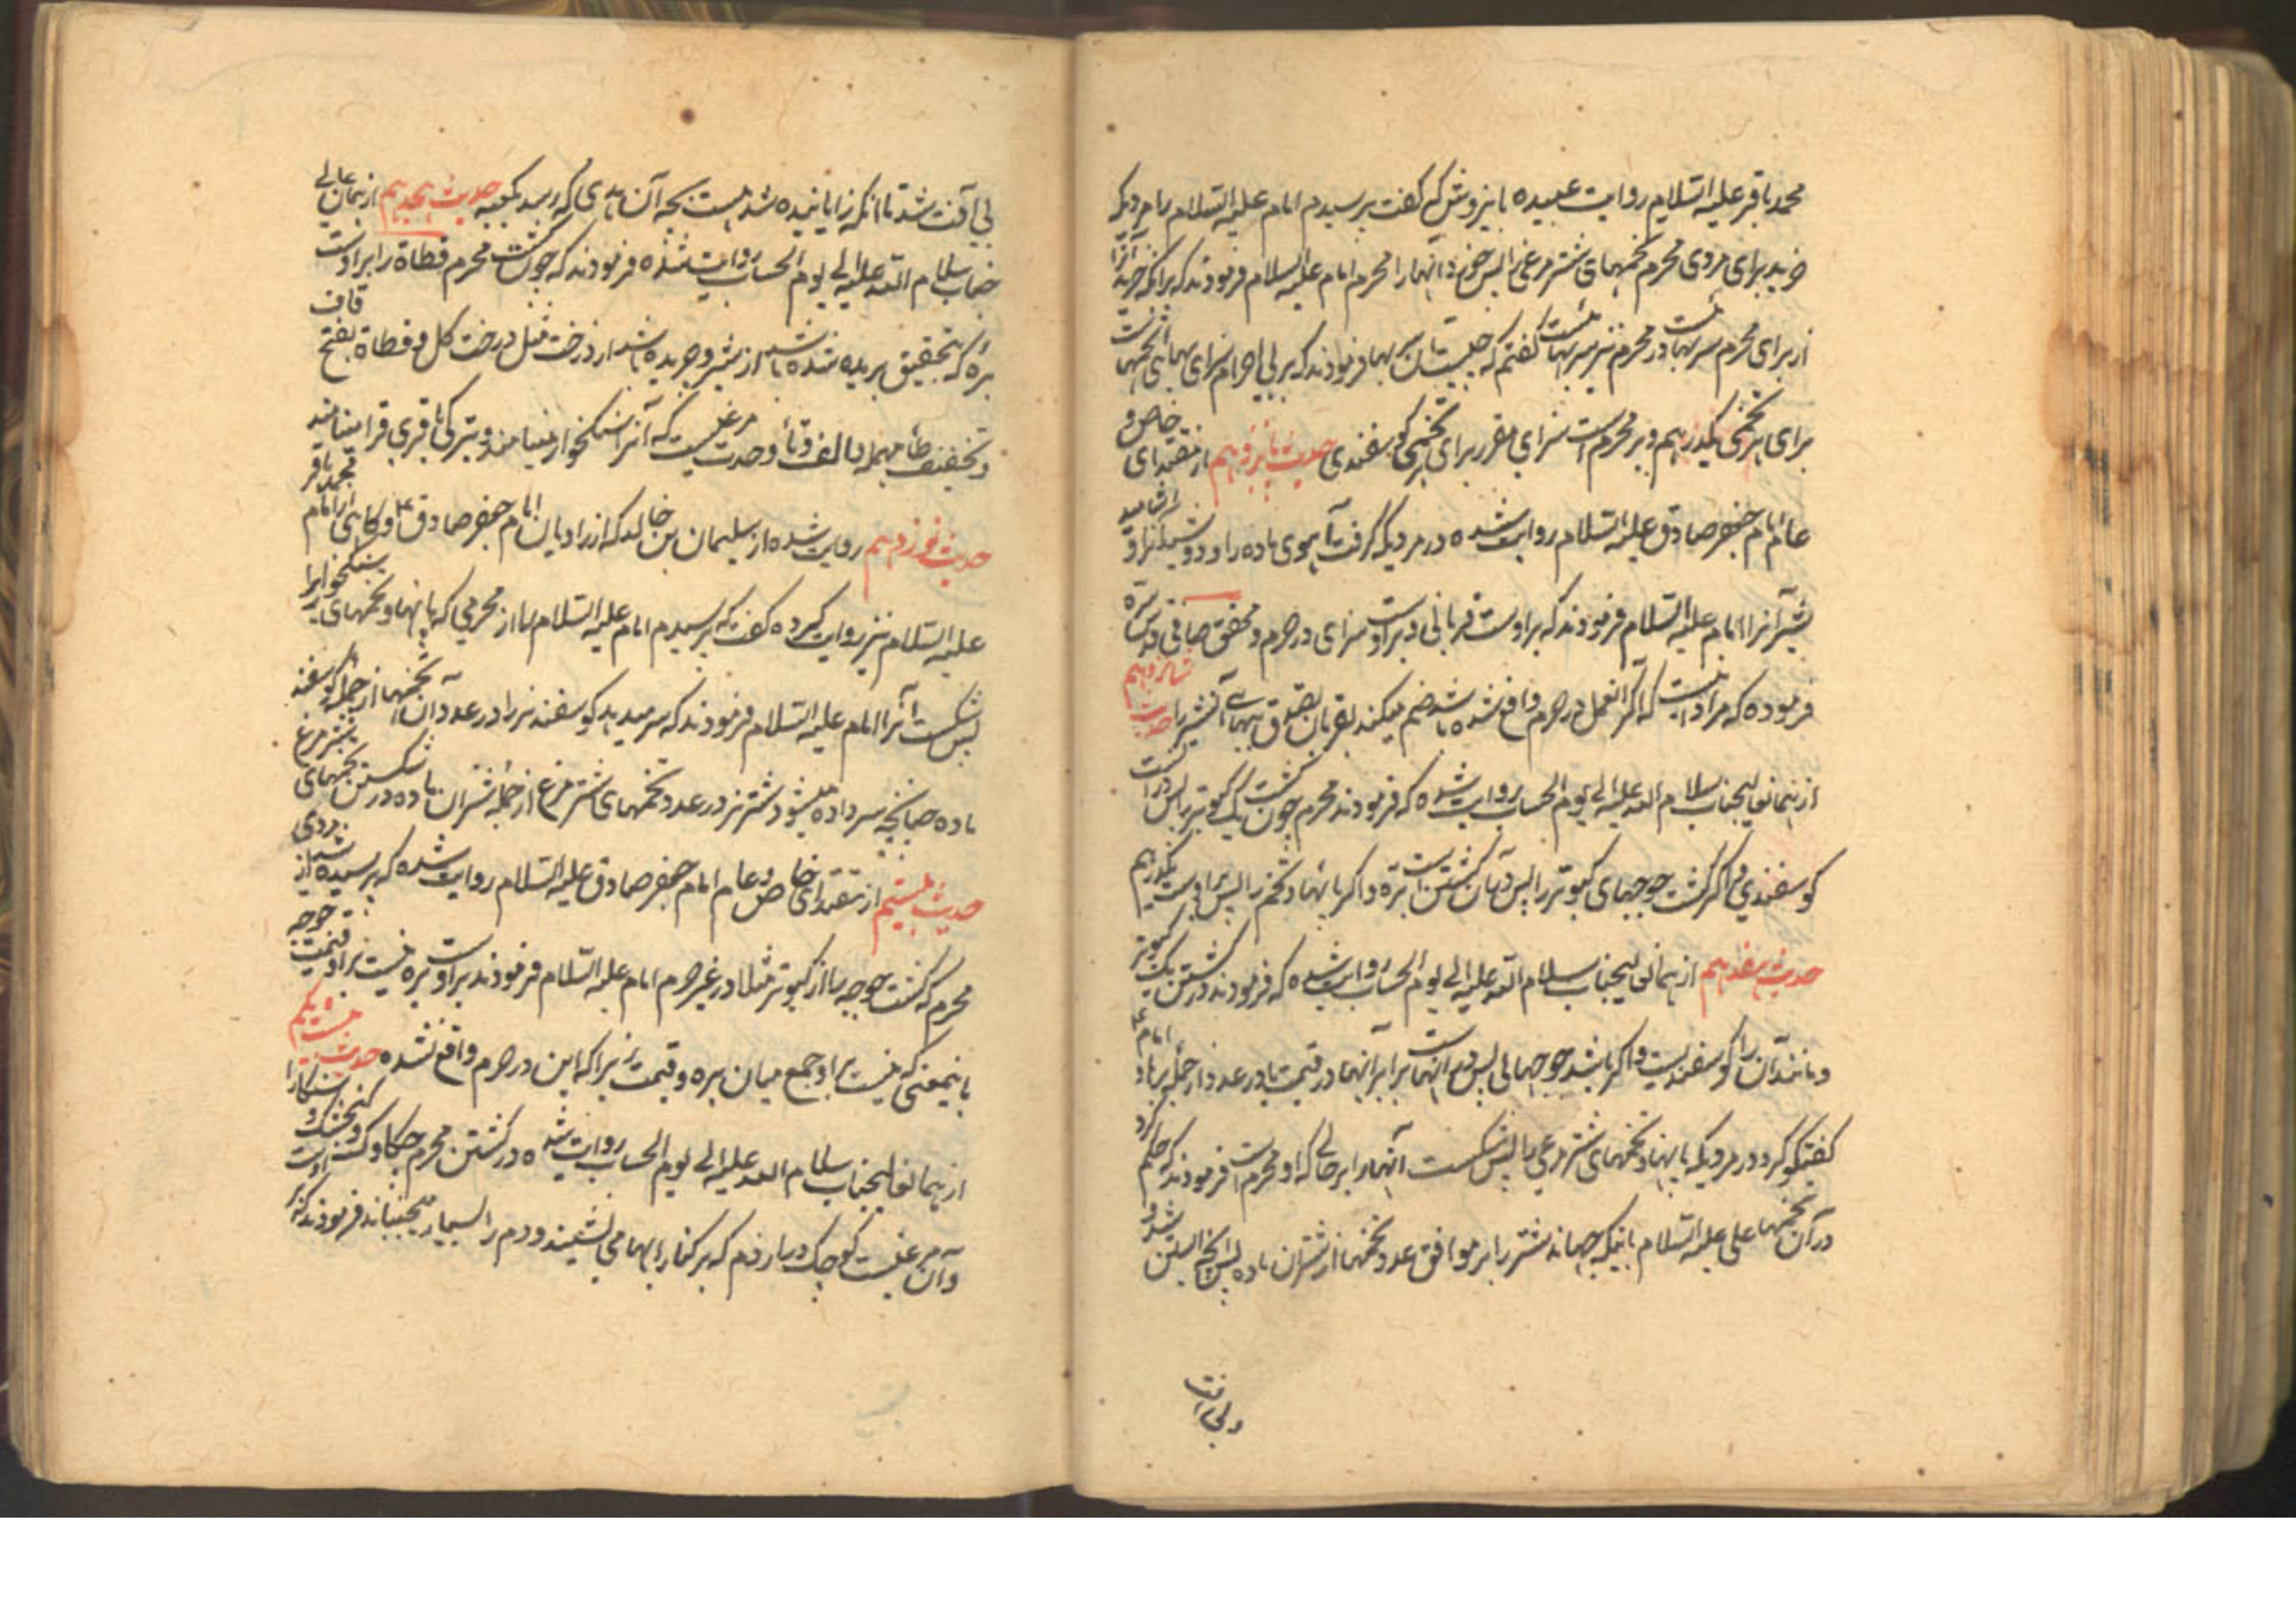 محمد باقر علیه السلام روایت عبیده باینروش که کفت پرسیدم امام علیه السلام را مردیکه
خرید برای مردی محرم تخمهای شترمرغی را پس خورد آنهارا محرم امام علیه السلام فرمودند که برآنکه خرید آنرا
از برای محرم سربهاست و بر محرم نیز سربهاست کفتم که چیست آن سر بهما فرمودند که بر بی احرام سزای بهای تخمهاست
برای هر تخمی یکدرهم و بر محرم است سزای مقرر برای هر تخمی کوسفندی حدیث پانزدهم از مقتدای خاص و
عام امام جعفر صادق علیه السلام روایت شده در مردیکه کرفت آهوی ماده را و دوشید آنرا و اشامید
شیر آنرا امام علیه السلام فرمودند که بر اوست قربانی و بر اوست سزای در حرم و محقق صافی قدس سره
فرموده که مراد اینست که اگر آنعمل در حرم واقع شده باشد ضم میکند بقربان تصدق ببهای آنشیر را حدیث شانزدهم
از همان عالیجناب سلام الله علیه الی یوم الحساب روایت شده که فرمودند محرم چون کشت یک کبوتر را پس در آنست
کوسفندی و اگر کشت جوجهای کبوتر را پس در آن کشتن است بره و اگر پا نهاد تخم را پس بر اوست یکدرهم
حدیث هفدهم از همان عالیجناب سلام الله علیه الی یوم الحساب روایت شده که فرمودند در کشتن یک کبوتر
و مانند آن را کوسفندیست و اگر باشد جوجهای پس در آنهاست برابر آنها در قیمت یا در عدد از جمله بره‌ها و امام ع
کفتکو کرد در مردیکه پا نهاد تخمهای شترمرغی را پس شکست آنهارا بر حالی که او محرم است فرمودند که حکم کرد
در آن تخمها علی علیه السلام باینکه جهاند شتر را بر موافق عدد تخمها از شتران ماده پس آنچه آبستن شد و
ولی آفت
بی آفت شد تا آنکه زایانیده شد هست بچه آن هدی که رسد بکعبه حدیث هیجدهم از همان عالی
جناب سلام الله علیه الی یوم الحساب روایت شده فرمودند که چون کشت محرم قطاة را بر اوست
بره که بتحقیق بریده شده باشد از شیر و چریده باشد از درخت مثل درخت کل و قطاة بفتح قاف
و تخفیف طاء مهمله و الف و تاء وحدت مرغیست که آنرا سنکخوار مینامند و بترکی باقری قرا مینامند
حدیث نوزدهم روایت شده از سلیمان بن خالد که از راویان امام جعفر صادق ع و کاهی از امام محمد باقر
علیه السلام نیز روایت کرده کفت که پرسیدم امام علیه السلام را از محرمی که پا نهاد تخمهای سنکخوار را
پس شکست آنرا امام علیه السلام فرمودند که سر میدهد کوسفند نر را در عدد آن تخمها از جمله کوسفند
ماده چنانچه سر داده میشود شتر نر در عدد تخمهای شترمرغ از جمله شتران ماده در شکستن تخمهای شترمرغ
حدیث بیستم از مقتدای خاص و عام امام جعفر صادق علیه السلام روایت شده که پرسیده شد از مردی
محرم که کشت جوجه را از کبوتر مثلا در غیر حرم امام علیه السلام فرمودند بر اوست بره و نیست بر او قیمت جوجه
باینمعنی که نیست بر او جمع میان بره و قیمت زیرا که این در حرم واقع نشده حدیث بیست و یکم
از همان عالیجناب سلام الله علیه الی یوم الحساب روایت شده در کشتن محرم چکاوک و کنجشک و
و آن مرغیست کوچک دراز دم که بر کنار ابها می نشیند و دم را بسیار میجنباند فرمودند که بر اوست